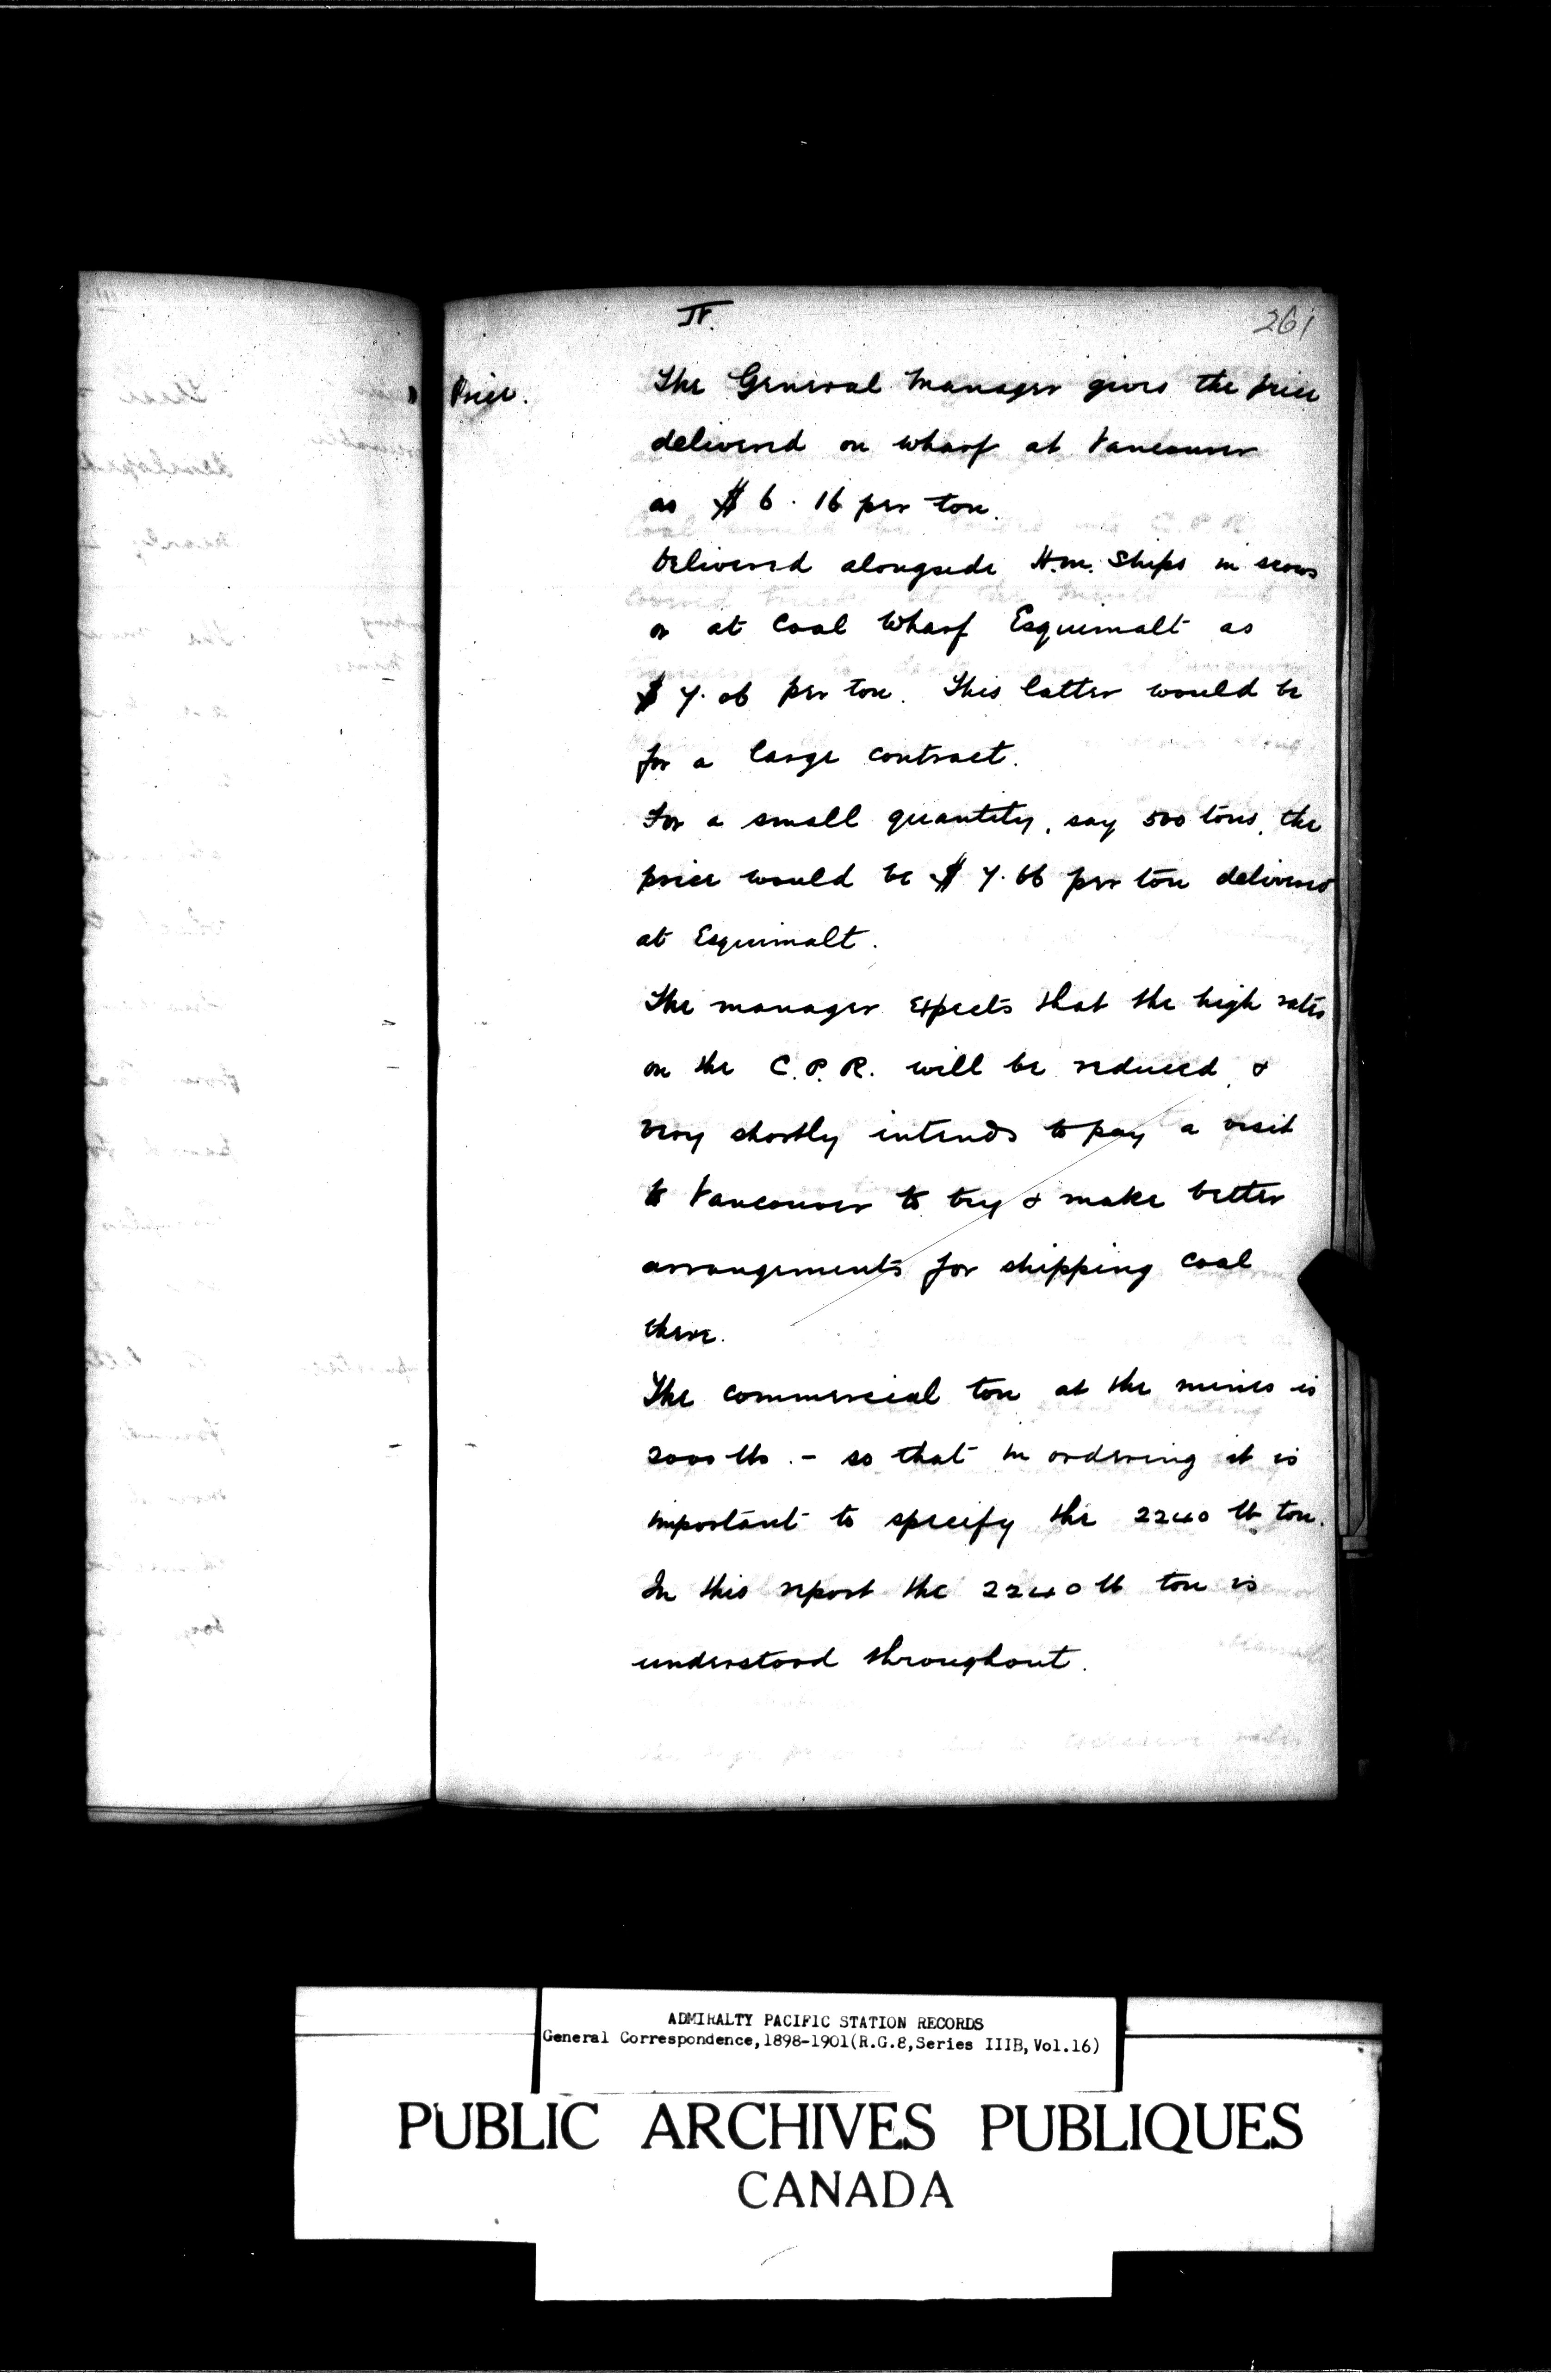 IV.
261
Price.
The General Manager gives the price
delivered on wharf at Vancouver
as $6.16 per ton.
Delivered alongside H.M. Ships in scows
or at Coal Wharf Esquimalt as
$7.06 per ton. This latter would be
for a large contract.
For a small quantity, say 500 tons, the
price would be $7.66 per ton delivered
at Esquimalt.
The manager expects that the high rates
on the C.P.R. will be reduced, &
very shortly intends to pay a visit
to Vancouver to try & make better
arrangements for shipping coal
there.
The commercial ton at the mines is
2000 lbs. - so that in ordering it is
important to specify the 2240 lb ton.
In this report the 2240 lb ton is
understood throughout.
ADMIRALTY PACIFIC STATION RECORDS
General Correspondence,1898-1901(R.G.8,Series IIIB,Vol.16)
PUBLIC ARCHIVES PUBLIQUES
CANADA